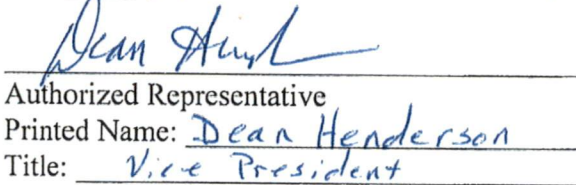 Dean
Authorized Representative
Printed Name: Dean Henderson
Title: Vice President